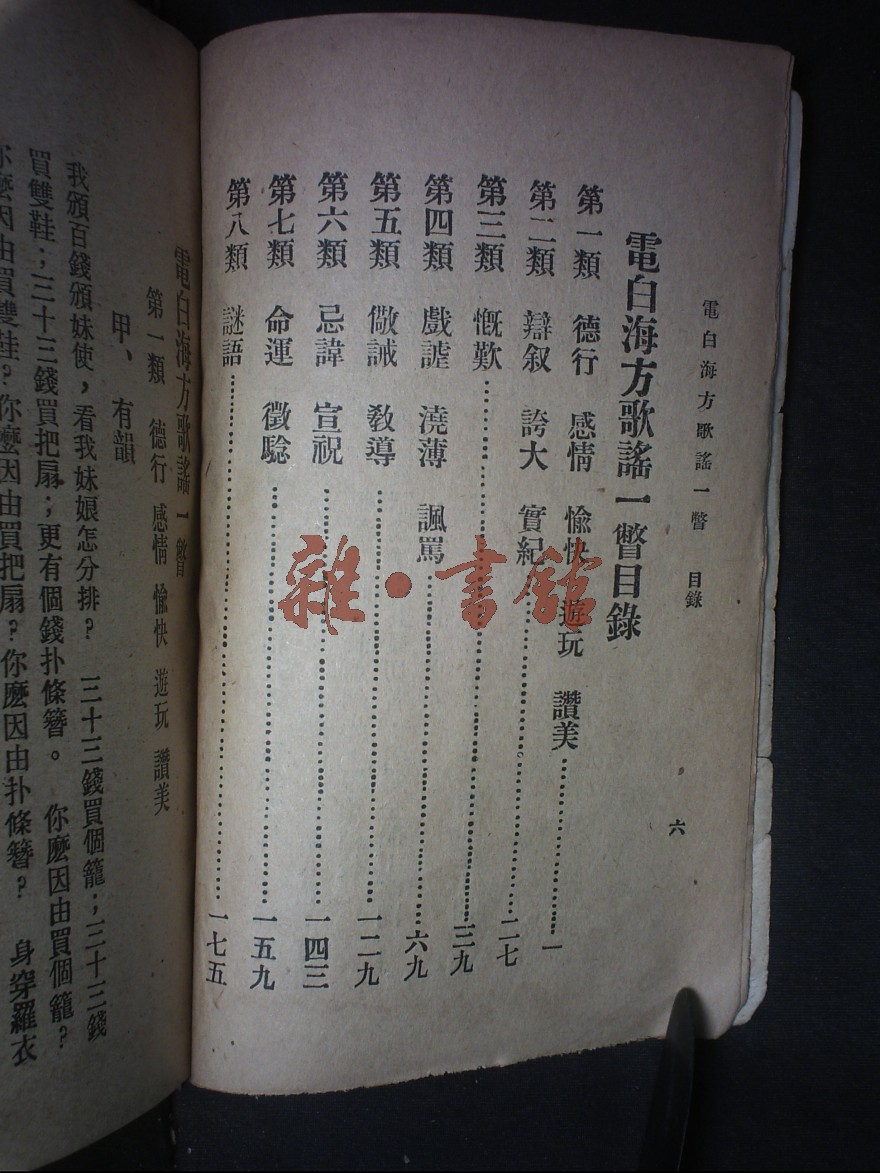 電白海方歌謠一瞥 目錄
六
電白海方歌謠一瞥目錄
第一類 德行 感情 愉快 遊玩 讚美……一
第二類 辯叙 誇大 實紀……二七
第三類 慨歎……三九
第四類 戲謔 澆薄 諷罵……六九
第五類 儆誡 教導……一二九
第六類 忌諱 宣祝……一四三
第七類 命運 徵騐……一五九
第八類 謎語……一七五
雜·書館
電白海方歌謠一瞥
第一類 德行 感情 愉快 遊玩 讚美
甲、有韻
我頒百錢頒妹使,看我妹娘怎分排? 三十三錢買個籠;三十三錢
買雙鞋;三十三錢買把扇;更有個錢扑條簪。 你麽因由買個籠?
你麽因由買雙鞋?你麽因由買把扇?你麽因由扑條簪? 身穿羅衣